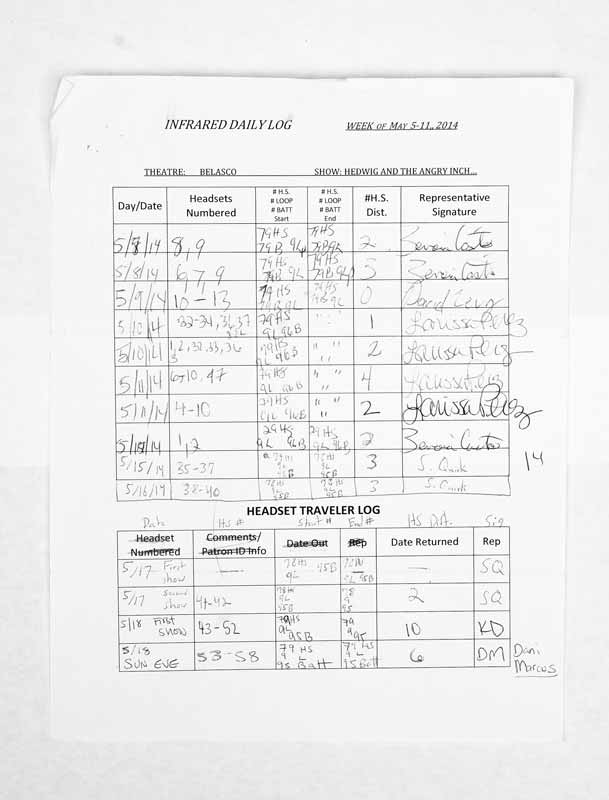 INFRARED DAILY LOG WEEK OF MAY 5-11,, 2014
THEATRE: BELASCO SHOW: HEDWIG AND THE ANGRY INCH...
Day/Date Headsets Numbered # H.S. # LOOP # BATT Start # H.S. # LOOP # BATT End #H.S. Dist. Representative Signature
5/7/14 8, 9 79 HS 79B 9L 79 HS 79B 9L 2
5/8/14 6, 7, 9 79 HS 79B 9L 79 HS 79B 9L 3
5/9/14 10-13 79 HS 9L 79 HS 9L 0
5/10/14 32-34, 36, 37 79 HS 9L 96B " " 1 Larissa Perez
5/10/14 1, 2, 32, 33, 36 79 HS 9L 96B " " 2 Larissa Perez
5/11/14 6-10, 47 79 HS 9L 96B " " 4 Larissa Perez
5/11/14 4-10 79 HS 9L 96B " " 2 Larissa Perez
1, 2 79 HS 9L 96B 79 HS 9L 96B 2
5/15/14 35-37 79 HS 9L 95B 79 HS 9L 95B 3 S. Quirk 14
5/16/14 38-40 78 HS 9L 95B 78 HS 9L 95B 3 S. Quirk
HEADSET TRAVELER LOG
Date HS # Start # End # HS Dist. Sig
Headset Numbered Comments/ Patron ID Info Date Out Rep Date Returned Rep
5/17 First show — 78 HS 9L 95B 78 HS 9L 95B — SQ
5/17 Second show 41-42 78 HS 9L 95B 78 9 95 2 SQ
5/18 FIRST SHOW 43-52 79 HS 9L 95B 79 9 95 10 KD
5/18 SUN EVE 53-58 79 HS 9 L 95 Batt 79 HS 9 L 95 Batt 6 DM Dani Marcus